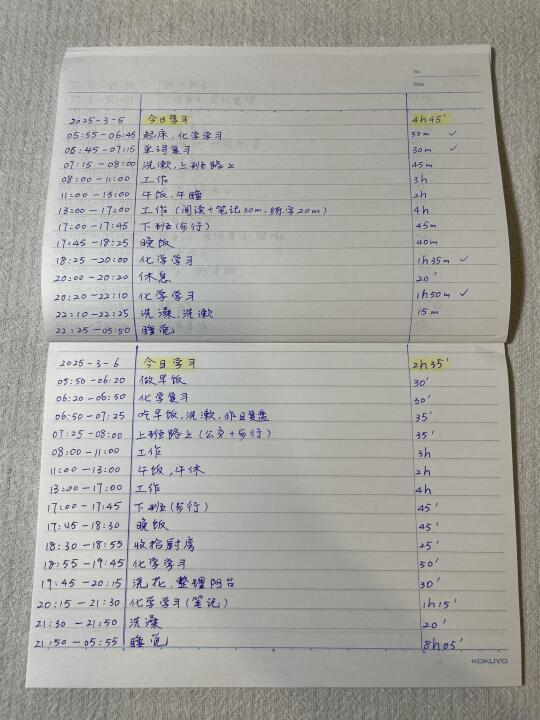 No.
Date
2025-3-5 今日学习 4h45'
05:55-06:45 起床,化学学习 50m ✓
06:45-07:15 单词复习 30m ✓
07:15-08:00 洗漱,上班路上 45m
08:00-11:00 工作 3h
11:00-13:00 午饭,午睡 2h
13:00-17:00 工作(阅读+笔记30m,练字20m) 4h
17:00-17:45 下班(步行) 45m
17:45-18:25 晚饭 40m
18:25-20:00 化学学习 1h35m ✓
20:00-20:20 休息 20'
20:20-22:10 化学学习 1h50m ✓
22:10-22:25 洗澡,洗漱 15m
22:25-05:50 睡觉
2025-3-6 今日学习 2h35'
05:50-06:20 做早饭 30'
06:20-06:50 化学复习 30'
06:50-07:25 吃早饭,洗漱,昨日复盘 35'
07:25-08:00 上班路上(公交+步行) 35'
08:00-11:00 工作 3h
11:00-13:00 午饭,午休 2h
13:00-17:00 工作 4h
17:00-17:45 下班(步行) 45'
17:45-18:30 晚饭 45'
18:30-18:55 收拾厨房 25'
18:55-19:45 化学学习 50'
19:45-20:15 洗花,整理阳台 30'
20:15-21:30 化学学习(笔记) 1h15'
21:30-21:50 洗澡 20'
21:50-05:55 睡觉 8h05'
KOKUYO